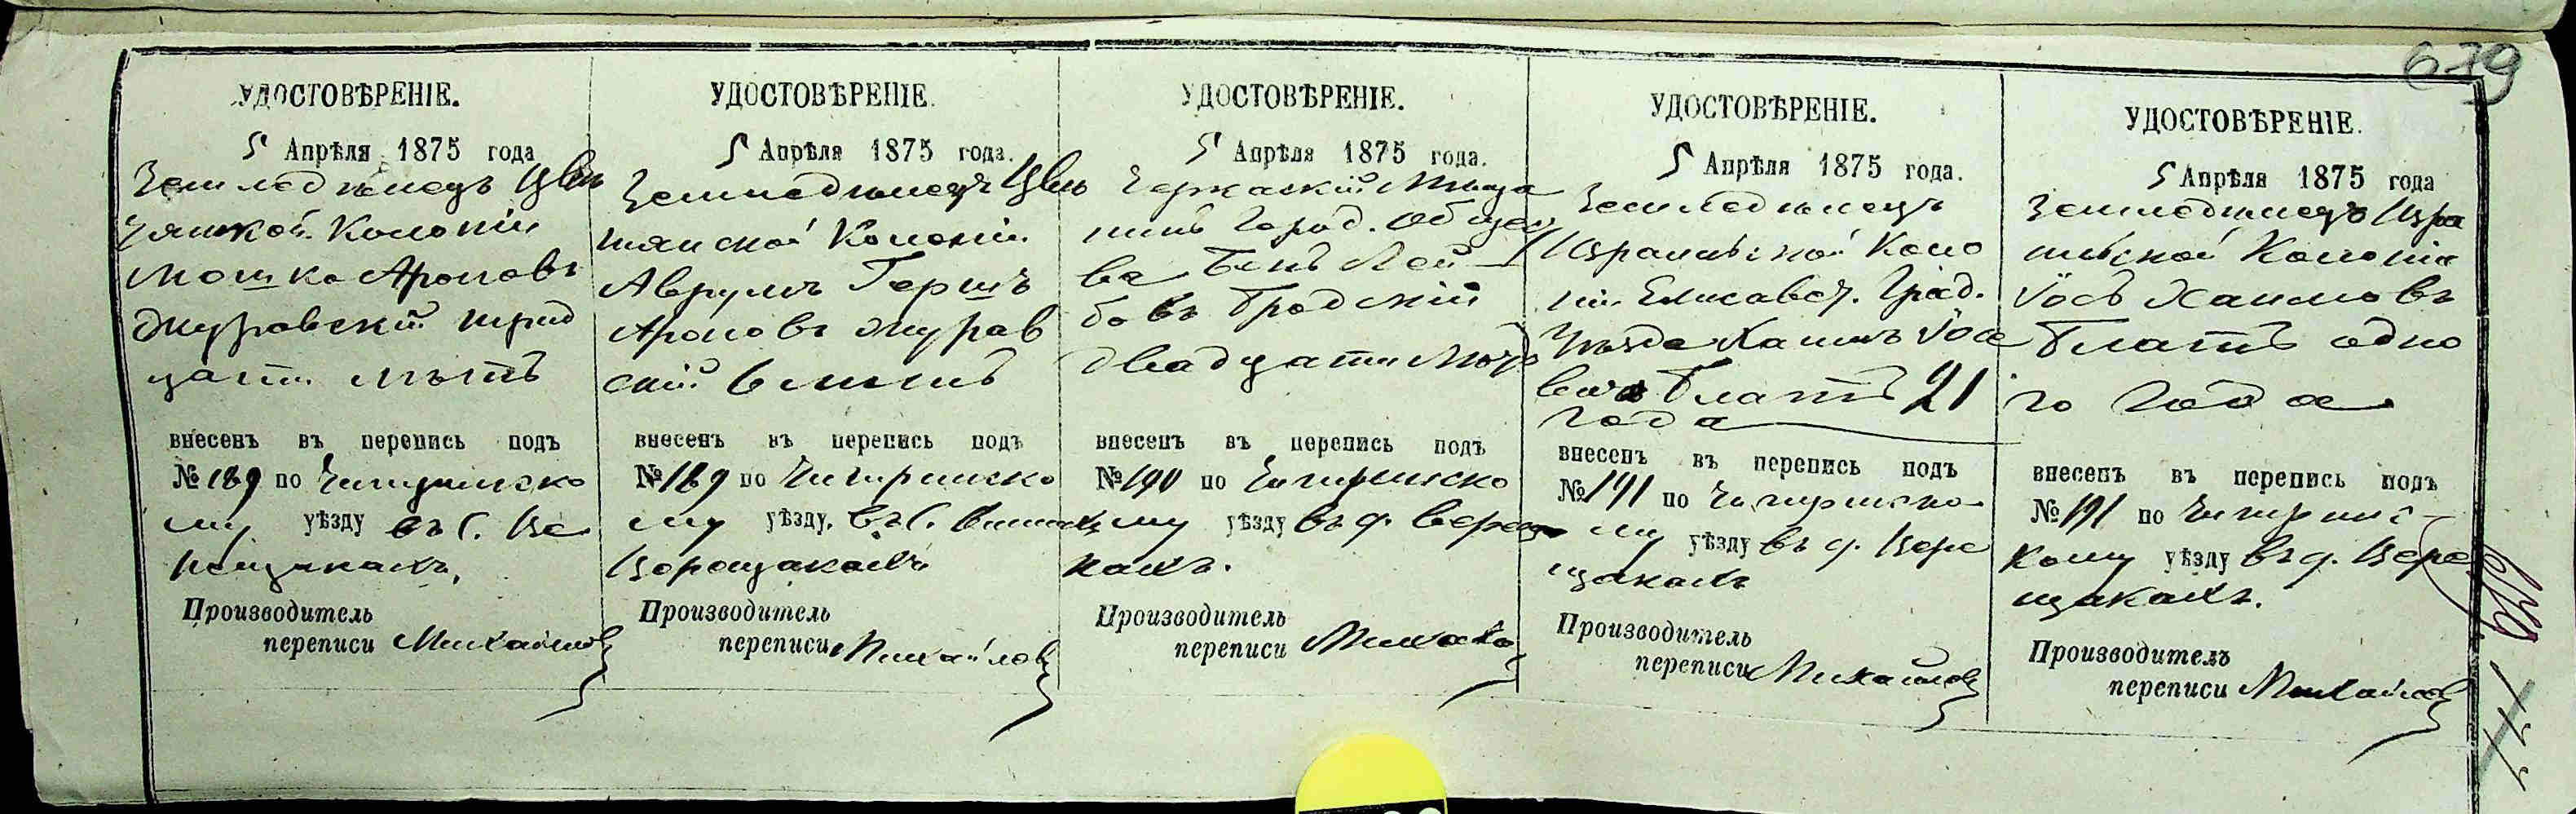 679
УДОСТОВѢРЕНІЕ.
5 Апрѣля 1875 года
Земледѣлецъ
Колоніи
Мошко Ароновъ
Журовскій трид
цати лѣтъ
внесенъ въ перепись подъ
№ 189 по Чигиринско
му уѣзду въ с. Ве
рещакахъ.
Производитель
переписи Михайловъ
УДОСТОВѢРЕНІЕ.
5 Апрѣля 1875 года.
Земледѣлецъ
Колоніи
Аврумъ Гершъ
Ароновъ Журав
скій 6 лѣтъ
внесенъ въ перепись подъ
№ 189 по Чигиринско
му уѣзду. въ с.
Верещакахъ
Производитель
переписи Михайловъ
УДОСТОВѢРЕНІЕ.
5 Апрѣля 1875 года.
Черкаскій Мѣща
нинъ Город. Общес
ва Бенъ Лей
бовъ Бродскій
двадцати
внесенъ въ перепись подъ
№ 190 по Чигиринско
му уѣзду въ д. Верещ
кахъ.
Производитель
переписи
УДОСТОВѢРЕНІЕ.
5 Апрѣля 1875 года.
Земледѣлецъ
Израильской Коло
ніи Елисавет. Град.
Уѣзда Хаимъ Іосе
Блатъ 21
года
внесенъ въ перепись подъ
№ 191 по Чигиринско
му уѣзду въ д. Вере
щакахъ
Производитель
переписи Михайловъ
УДОСТОВѢРЕНІЕ.
5 Апрѣля 1875 года
Земледѣлецъ Изра
ильской Колоніи
Іосъ Хаимовъ
Блатъ одно
го года
внесенъ въ перепись подъ
№ 191 по Чигиринс-
кому уѣзду въ д. Вере
щакахъ.
Производитель
переписи Михайловъ
679